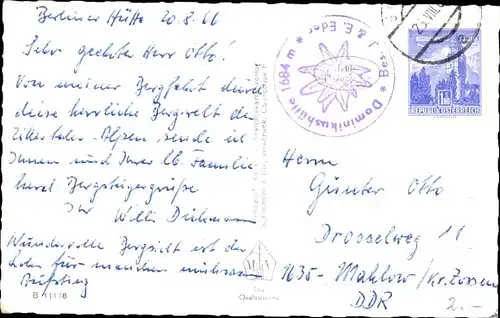 Berliner Hütte 20.8.66
Sehr geehrter Herr Otto!
Von meiner Bergfahrt durch
diese herrliche Bergwelt der
Zillertaler-Alpen sende ich
Ihnen und Ihrer lb. Familie
herzl. Bergsteigergrüße
Ihr Willi
Wundervolle Bergsicht ist der
Lohn für manchen mühsamen
Aufstieg
B 11178
* Dominikushütte 1684 m * Bes. J. & E. Eder
REPUBLIK ÖSTERREICH
Herrn
Günter Otto
Drosselweg 11
1635- Mahlow / Kr. Zossen
DDR
2.-